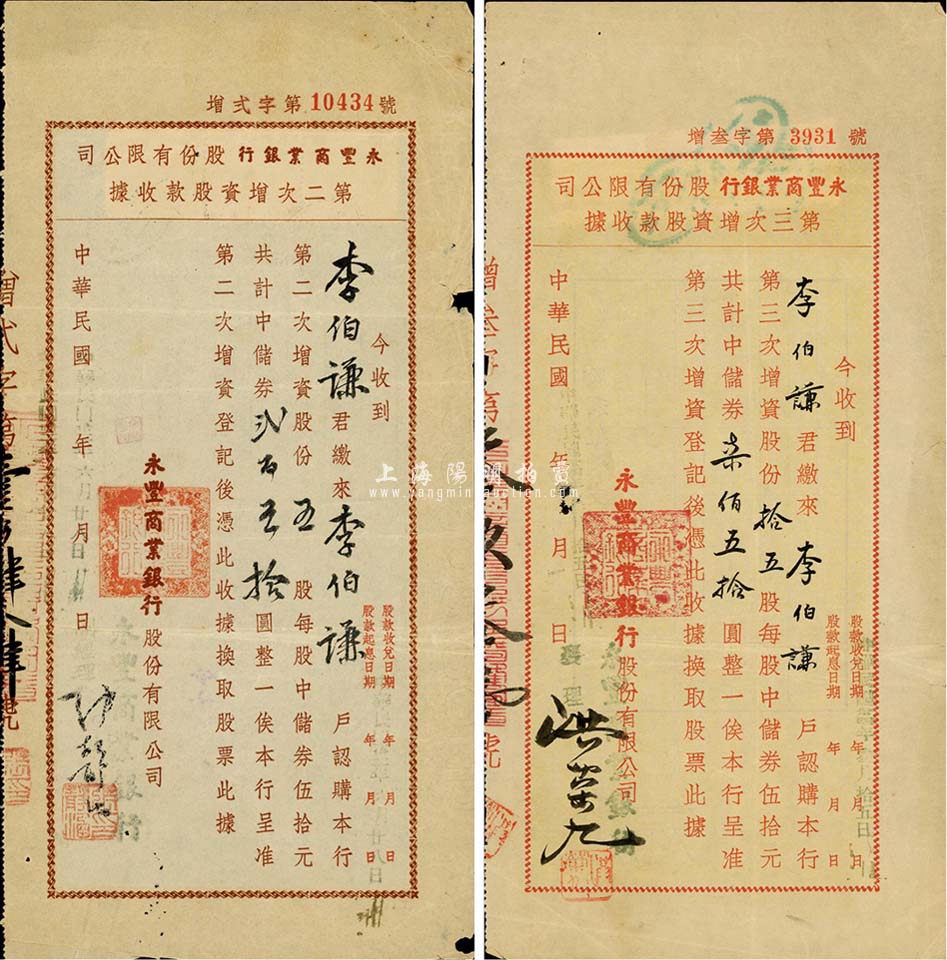 增弍字第10434號
永豐商業銀行股份有限公司
第二次增資股款收據
今收到
李伯謙君繳來李伯謙戶認購本行
第二次增資股份五股每股中儲券伍拾元
共計中儲券弍百五拾圓整一俟本行呈准
第二次增資登記後憑此收據換取股票此據
股款收兌日期 年 月 日
股款起息日期 年 月 日
永豐商業銀行股份有限公司
中華民國 年 月 日
增叁字第3931號
永豐商業銀行股份有限公司
第三次增資股款收據
今收到
李伯謙君繳來李伯謙戶認購本行
第三次增資股份拾五股每股中儲券伍拾元
共計中儲券柒佰五拾圓整一俟本行呈准
第三次增資登記後憑此收據換取股票此據
股款收兌日期 年 月 日
股款起息日期 年 月 日
永豐商業銀行股份有限公司
洪荣九
中華民國 年 月 日
上海陽明拍賣
www.yangmingauction.com